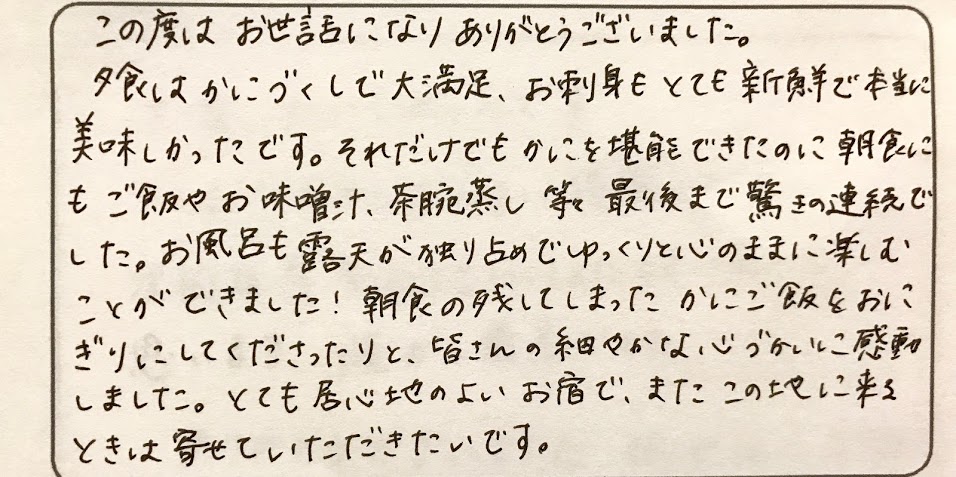 この度は お世話になり ありがとうございました。
夕食は かにづくしで大満足、お刺身も とても 新鮮で本当に
美味しかったです。それだけでも かにを堪能できたのに 朝食に
も ご飯や お味噌汁、茶腕蒸し 等々 最後まで驚きの連続で
した。お風呂も露天が独り占めでゆっくりと心のままに楽しむ
ことが できました！ 朝食の残してしまった かにご飯をおに
ぎりにしてくださったりと、皆さんの細やかな心づかいに感動
しました。とても居心地のよい お宿で、また この地に来る
ときは 寄せていただきたいです。